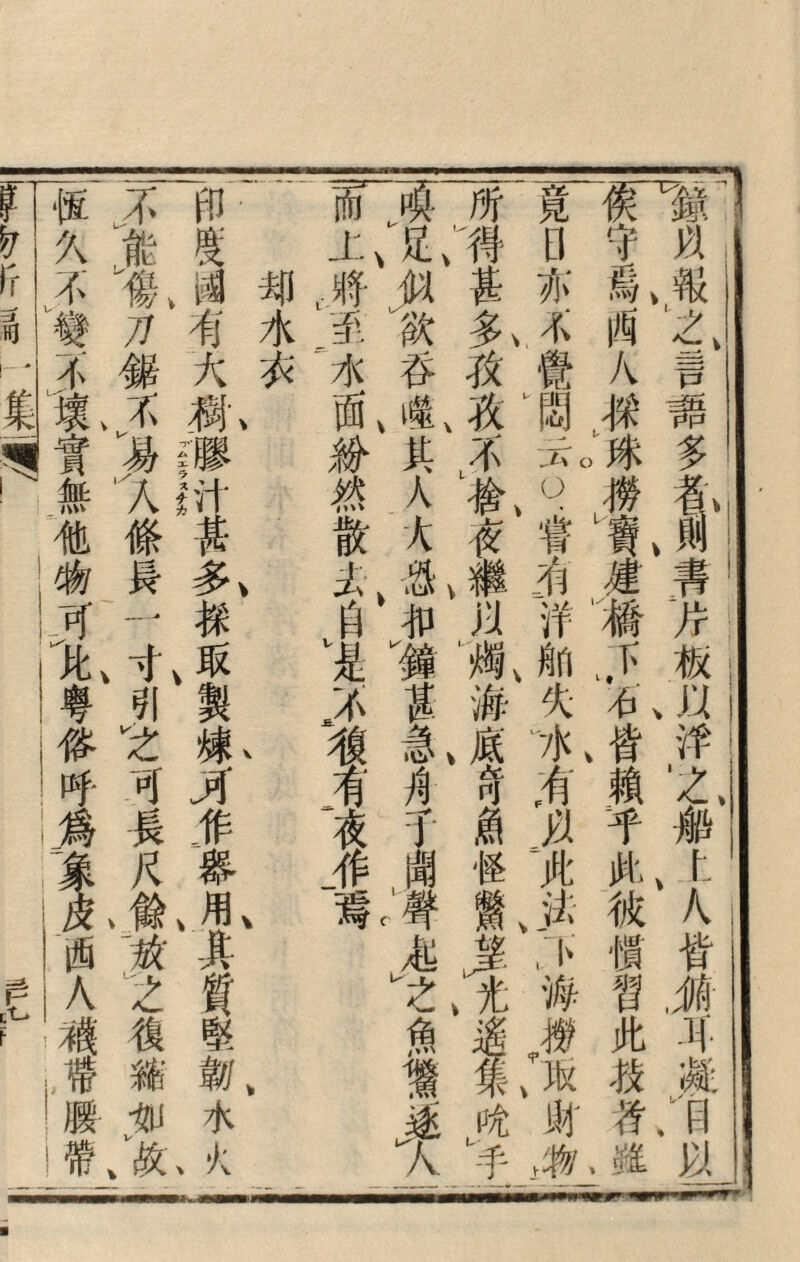 鐘以報之、言語多者、則書片板以浮之、船上人皆俯耳凝目以
俟守焉、西人採珠撈寶、建橋下石、皆賴乎此、彼慣習此技者、雖
竟日亦不覺悶云。○嘗有洋舶失水、有以此法下海撈取財物、
所得甚多、孜孜不捨、夜繼以燭、海底奇魚怪鱉、望光遙集、吮手
嗅足、似欲吞噬、其人大恐、扣鐘甚急、舟子聞聲起之、魚鱉逐人
而上、將至水面、紛然散去、自是不復有夜作焉。
却水衣
印度國有大樹、膠汁甚多、採取製煉、可作器用、其質堅韌、水火
ゴムエラスチカ
不能傷、刀鋸不易入、條長一寸、引之可長尺餘、放之復縮如故、
恆久不變不壞、實無他物可比、粤俗呼爲象皮、西人襪帶腰帶、
博物新編一集